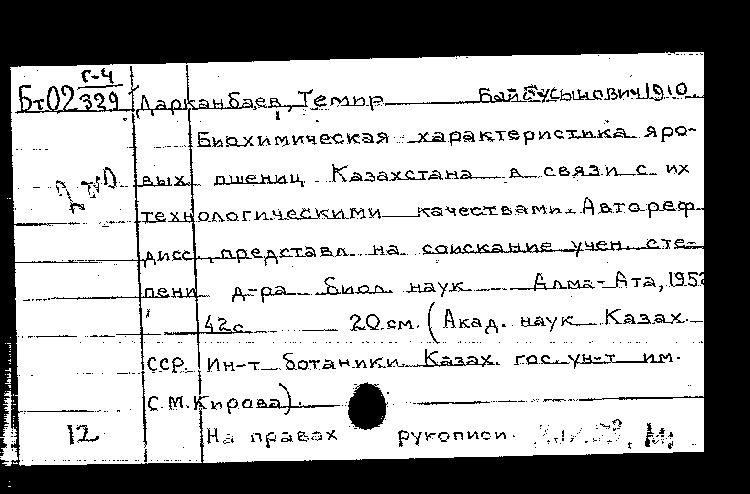 Г-4
Бт02 329 Дарканбаев, Темир Байбусынович 1910.
Биохимическая характеристика яро-
вых пшениц Казахстана в связи с их
технологическими качествами. Автореф.
дисс., представл. на соискание учен. сте-
пени д-ра биол. наук Алма-Ата, 1952
42с 20см. (Акад. наук Казах.
ССР. Ин-т ботаники. Казах. гос. ун-т им.
С.М. Кирова).
12 На правах рукописи.